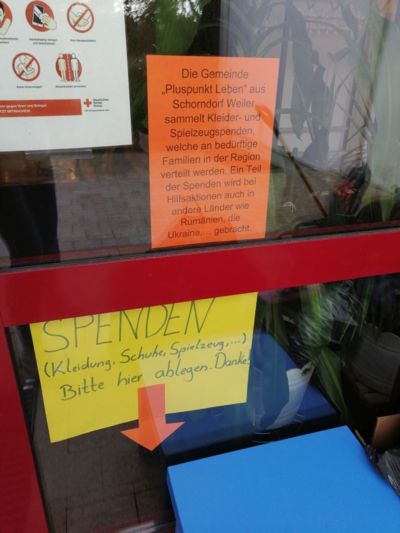 Deutsches
Rotes
Kreuz
Die Gemeinde
„Pluspunkt Leben“ aus
Schorndorf Weiler
sammelt Kleider- und
Spielzeugspenden,
welche an bedürftige
Familien in der Region
verteilt werden. Ein Teil
der Spenden wird bei
Hilfsaktionen auch in
andere Länder wie
Rumänien, die
Ukraine,... gebracht.
SPENDEN
(Kleidung, Schuhe, Spielzeug,...)
Bitte hier ablegen. Danke!